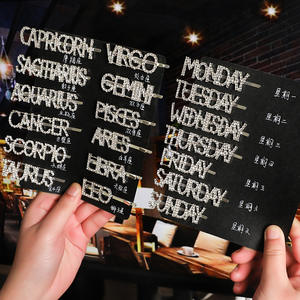 CAPRICORN
摩羯座
SAGITTARIUS
射手座
AQUARIUS
水瓶座
CANCER
巨蟹座
SCORPIO
天蝎座
TAURUS
金牛座
VIRGO
处女座
GEMINI
双子座
PISCES
双鱼座
ARIES
白羊座
LIBRA
天秤座
LEO
狮子座
MONDAY
星期一
TUESDAY
星期二
WEDNESDAY
星期三
THURSDAY
星期四
FRIDAY
星期五
SATURDAY
星期六
SUNDAY